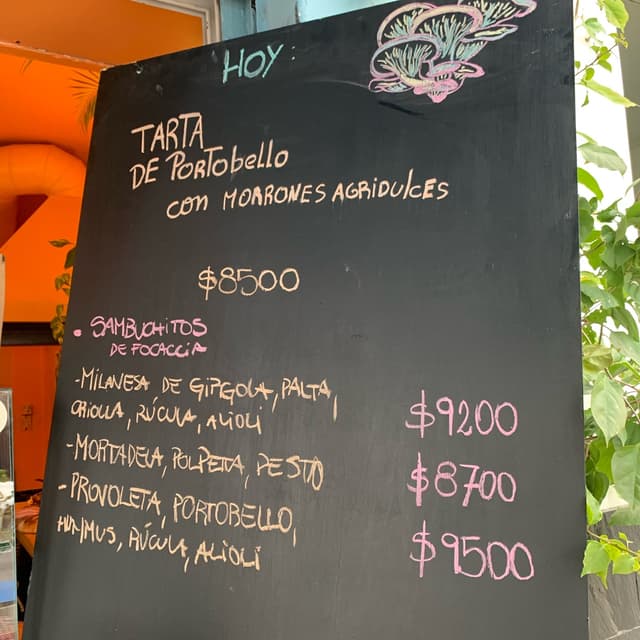 HOY:
TARTA
DE PORTObELLO
con MORRONES AGRIDULCES
$8500
• SAMBUCHITOS
DE FOCACCIA
-MILANESA DE GIRGOLA, PALTA,
CRIOLLA, RÚCULA, ALIOLI
$9200
-MORTADELA, POLPETA, PESTO
$8700
-PROVOLETA, PORTOBELLO,
HUMMUS, RÚCULA, ALIOLI
$9500